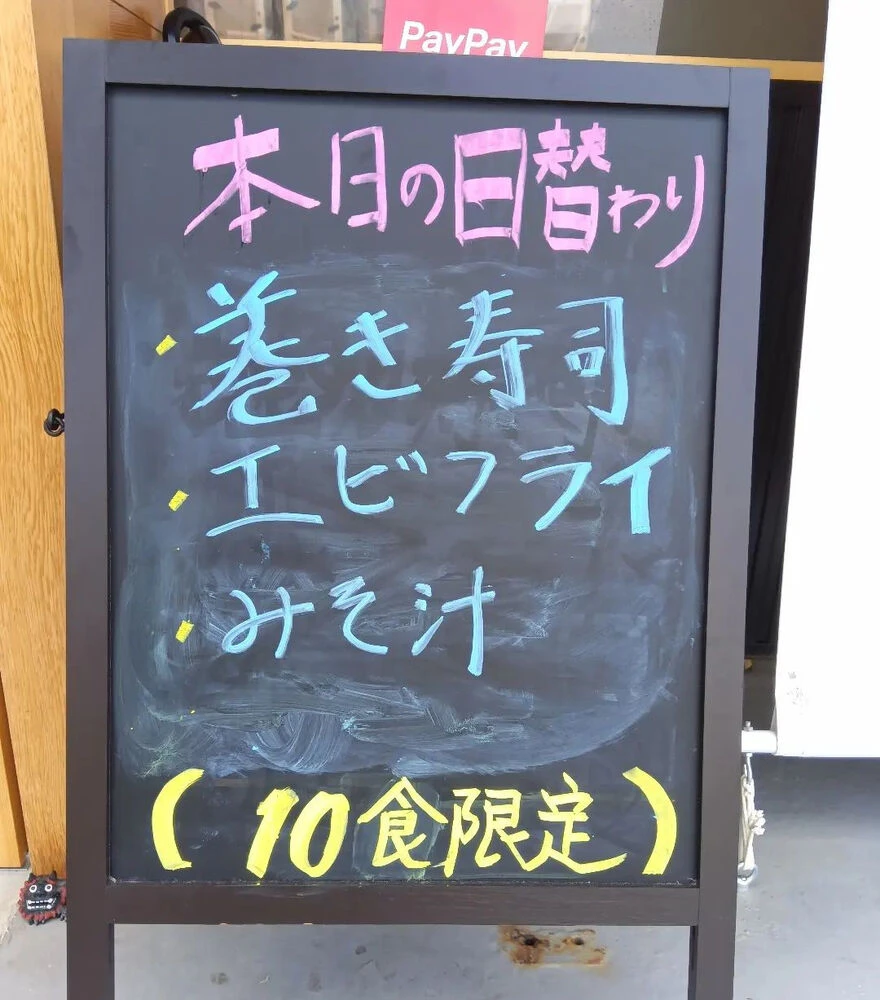 PayPay
本日の日替わり
・巻き寿司
・エビフライ
・みそ汁
(10食限定)